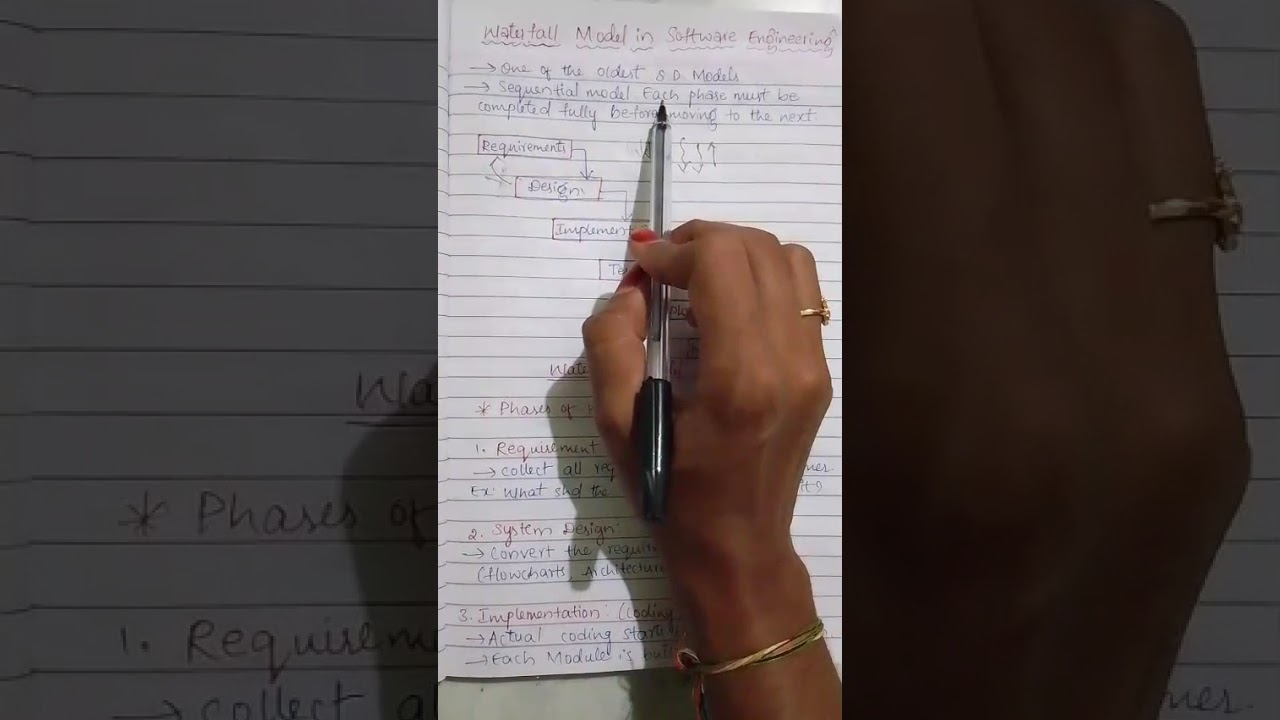 Waterfall Model in Software Engineering
→ One of the oldest S D Models
→ Sequential model. Each phase must be
completed fully before moving to the next.
Requirements
Design
Implement
Te
Wate
* Phases of
1. Requirement
→ collect all req
Ex: What shd the it?
2. System Design:
→ Convert the require
(flowcharts, Architecture
3. Implementation: (coding
→ Actual coding start
→ Each Module is buil